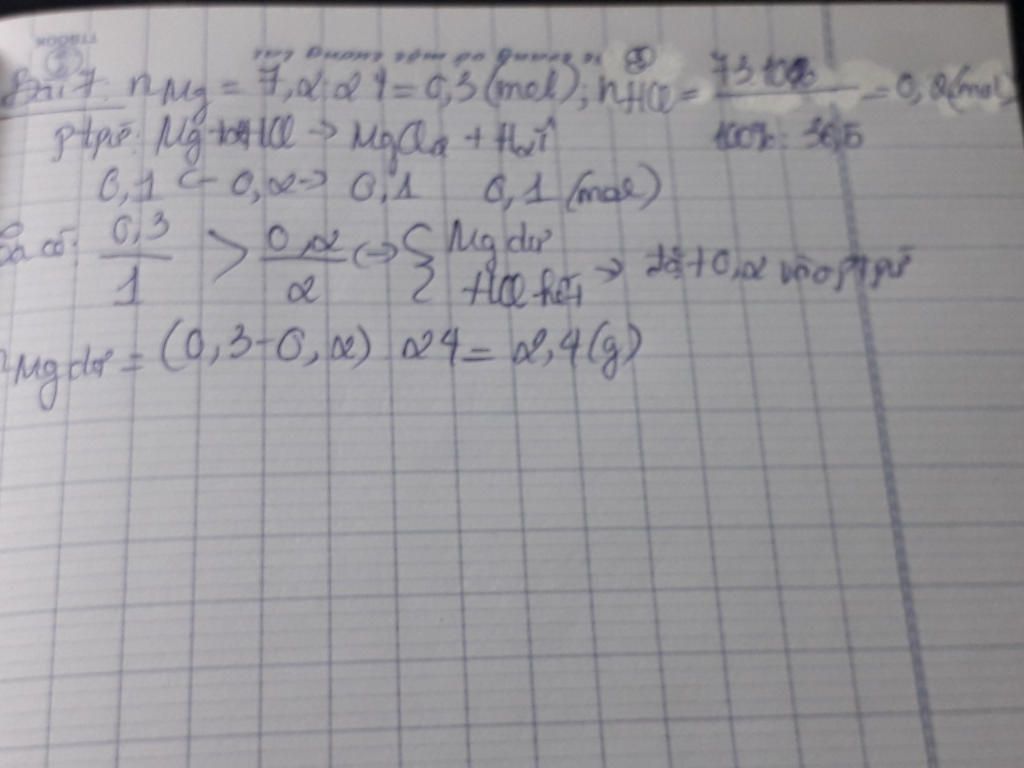 Bài 7: nMg = 7,2:24 = 0,3 (mol); nHCl = 73.10% / 100%.36,5 = 0,2 (mol)
ptpư: Mg + 2HCl → MgCl2 + H2↑
0,1 ← 0,2 → 0,1 0,1 (mol)
Ta có: 0,3/1 > 0,2/2 → { Mg dư HCl hết → đặt 0,2 vào ptpư
mMg dư = (0,3-0,2) 24 = 2,4 (g)